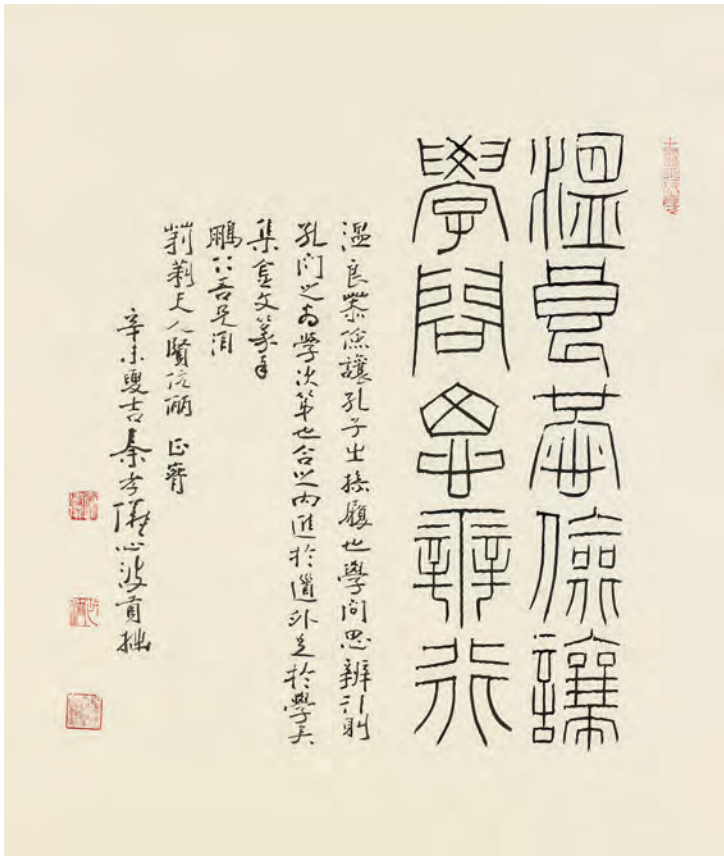 溫良恭儉讓
學問思辨行
溫良恭儉讓孔子出操履也學問思辨行則
孔門之為學次第也合之內進於道外足於學矣
集金文篆奉
鵬仁吾兄
莉莉夫人賢伉儷 正腕
辛未夏吉秦孝儀心波育拙